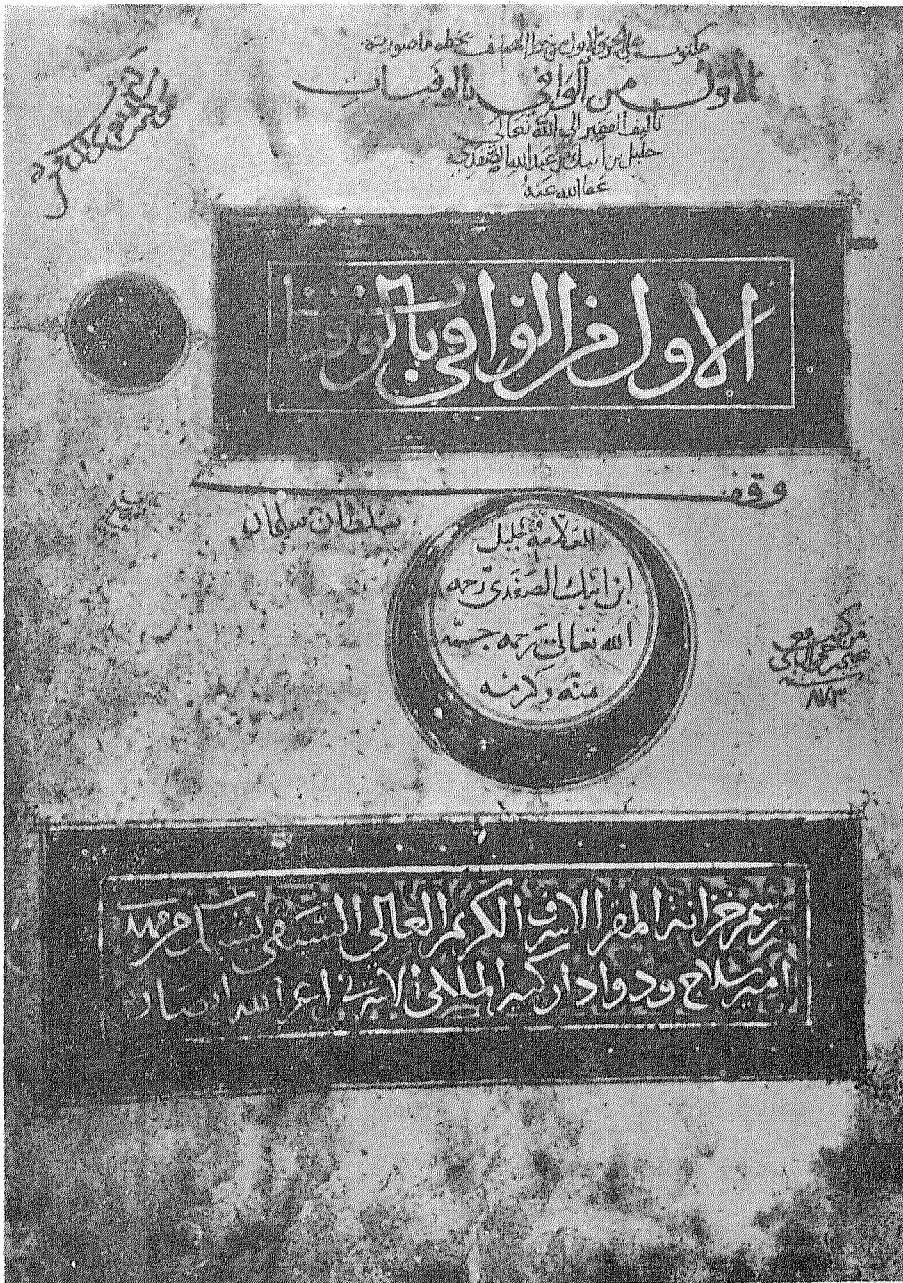 مكتوب على الجزء الاول من هذا المصنف بخطه ما صورته
الاول من الوافي بالوفيات
تاليف الفقير الى الله تعالى
خليل بن ايبك بن عبد الله الصفدي
عفا الله عنه
الاول من الوافي بالوفيات
وقف
سلطان سليمان
للعلامة خليل
ابن ايبك الصفدي رحمه
الله تعالى رحمه جمـة
بمنه وكرمه
من كتب
٨٧٣
برسم خزانة المقر الاشرف الكريم العالي السيفي يشبك من مهدي
امير سلاح ودوادار كبير الملكي الاشرفي اعز الله انصاره